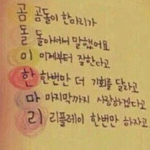 곰 곰돌이 한마리가
돌 돌아서니 말했어요
이 이제부터 잘한다고
한 한번만 더 기회를 달라고
마 마지막까지 사랑하겠다고
리 리플레이 한번만 하자고